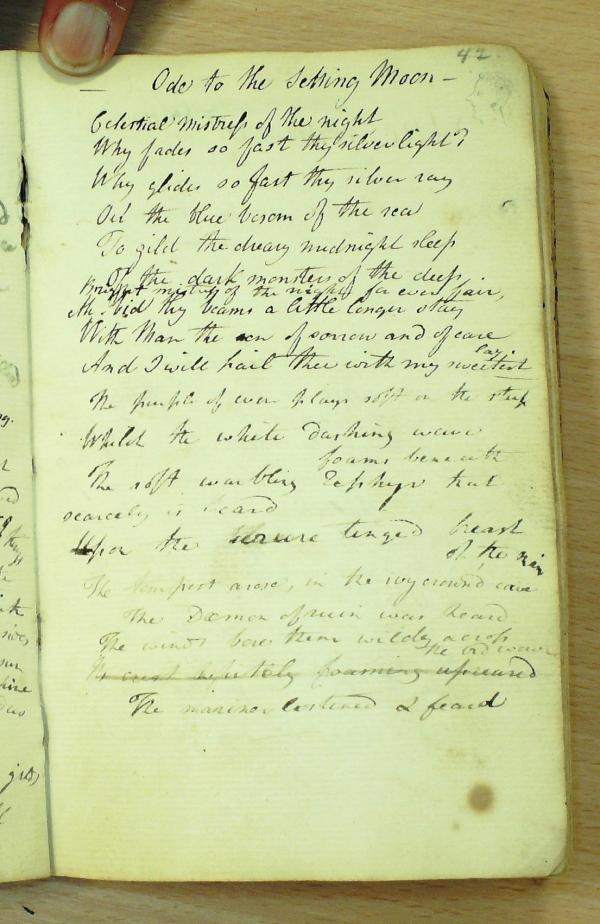 42
— Ode to the Setting Moon —
Celestial mistress of the night
Why fades so fast thy silver light?
Why glides so fast thy silver ray
On the blue bosom of the sea
To gild the dreary midnight sleep
Of the dark monsters of the deep
Bright mistress of the night for ever fair,
Ah bid thy beams a little longer stay
With Man the son of sorrow and of care
And I will hail thee with my sweetest
lay
The purple of even plays soft on the steep
Whilst the white dashing wave
foams beneath
The soft warbling Zephyr that
scarcely is heard
Upon the azure tinged breast
of the
The tempest arose, in the ivy crown'd cave
The Dæmon of ruin was heard
The winds bore them wildly across
the wave
foaming upward
The mariner listened & feard